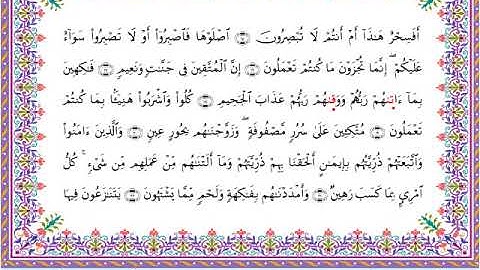 أَفَسِحْرٌ هَٰذَآ أَمْ أَنتُمْ لَا تُبْصِرُونَ ١٥ ٱصْلَوْهَا فَٱصْبِرُوٓا۟ أَوْ لَا تَصْبِرُوا۟ سَوَآءٌ
عَلَيْكُمْ ۖ إِنَّمَا تُجْزَوْنَ مَا كُنتُمْ تَعْمَلُونَ ١٦ إِنَّ ٱلْمُتَّقِينَ فِى جَنَّٰتٍ وَنَعِيمٍ ١٧ فَٰكِهِينَ
بِمَآ ءَاتَىٰهُمْ رَبُّهُمْ وَوَقَىٰهُمْ رَبُّهُمْ عَذَابَ ٱلْجَحِيمِ ١٨ كُلُوا۟ وَٱشْرَبُوا۟ هَنِيٓـًٔۢا بِمَا كُنتُمْ
تَعْمَلُونَ ١٩ مُتَّكِـِٔينَ عَلَىٰ سُرُرٍ مَّصْفُوفَةٍ ۖ وَزَوَّجْنَٰهُم بِحُورٍ عِينٍ ٢٠ وَٱلَّذِينَ ءَامَنُوا۟
وَٱتَّبَعَتْهُمْ ذُرِّيَّتُهُم بِإِيمَٰنٍ أَلْحَقْنَا بِهِمْ ذُرِّيَّتَهُمْ وَمَآ أَلَتْنَٰهُم مِّنْ عَمَلِهِم مِّن شَىْءٍ ۚ كُلُّ
ٱمْرِئٍۭ بِمَا كَسَبَ رَهِينٌ ٢١ وَأَمْدَدْنَٰهُم بِفَٰكِهَةٍ وَلَحْمٍ مِّمَّا يَشْتَهُونَ ٢٢ يَتَنَٰزَعُونَ فِيهَا